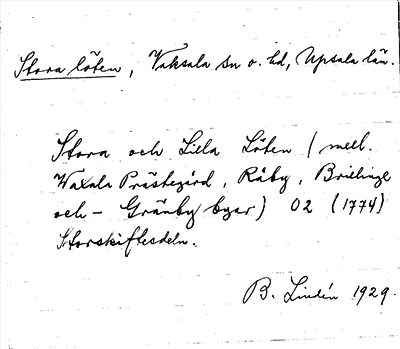 Stora löten, Vaksala sn o. hd, Upsala län.
Stora och Lilla Löten (med.
Waxala Prästegård, Råby, Brillinge
och - Gränby byar) 02 (1774)
Storskiftesdeln.
B. Lindén 1929.